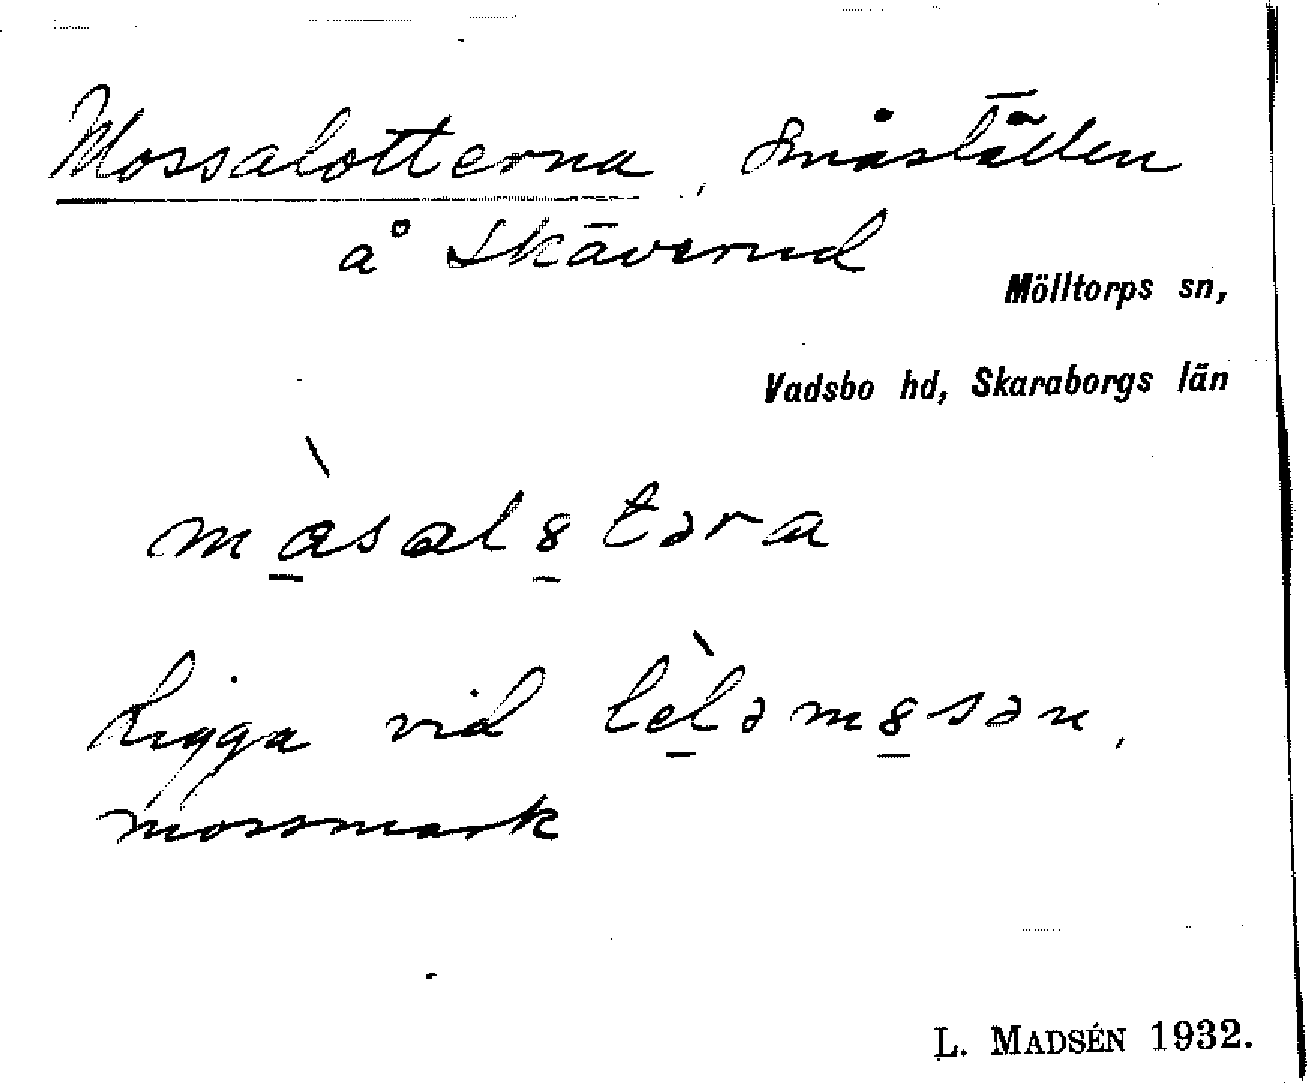 Mossalotterna, småställen
å Skäverud
Mölltorps sn,
Vadsbo hd, Skaraborgs län
mo̱̍sal8̱təra
Ligga vid le̱̍ləm8̱sən,
mossmark
L. MADSÉN 1932.